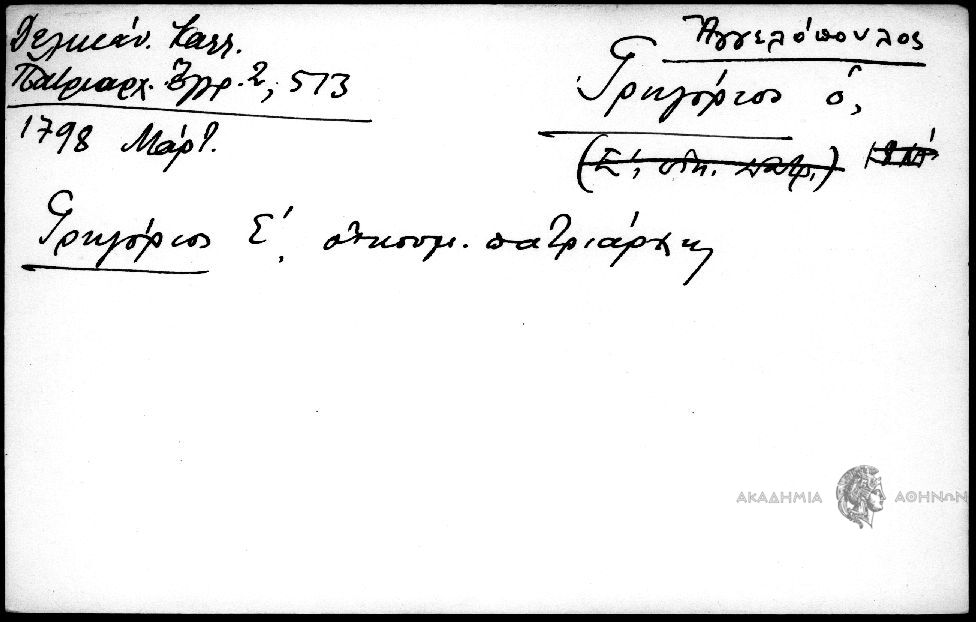 Δελικάν. Καλλ.
Πατριαρχ. Ἔγγρ. 2, 513
1798 Μάρτ.
Ἀγγελόπουλος
Γρηγόριος ὁ,
(Ε', οἰκ. πατρ.)
Γρηγόριος Ε', οἰκουμ. πατριάρχης
ΑΚΑΔΗΜΙΑ ΑΘΗΝΩΝ